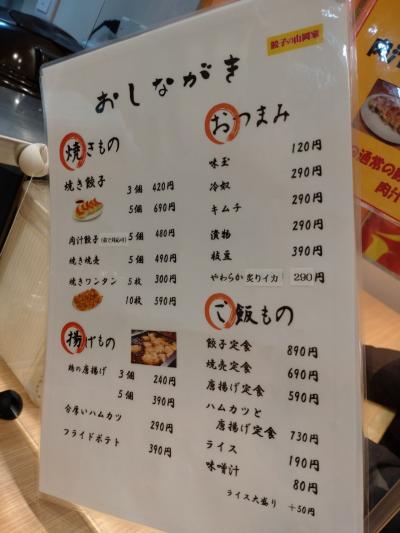 餃子の山岡家
おしながき
焼きもの
焼き餃子 3個 420円
5個 690円
肉汁餃子 5個 480円
焼き焼売 5個 490円
焼きワンタン 5枚 300円
10枚 590円
揚げもの
鶏の唐揚げ 3個 240円
5個 390円
分厚いハムカツ 290円
フライドポテト 390円
おつまみ
味玉 120円
冷奴 290円
キムチ 290円
漬物 290円
枝豆 390円
やわらか 炙りイカ 290円
ご飯もの
餃子定食 890円
焼売定食 690円
唐揚げ定食 590円
ハムカツと
唐揚げ定食 730円
ライス 190円
味噌汁 80円
ライス大盛り +50円
肉汁
の通常の
肉汁